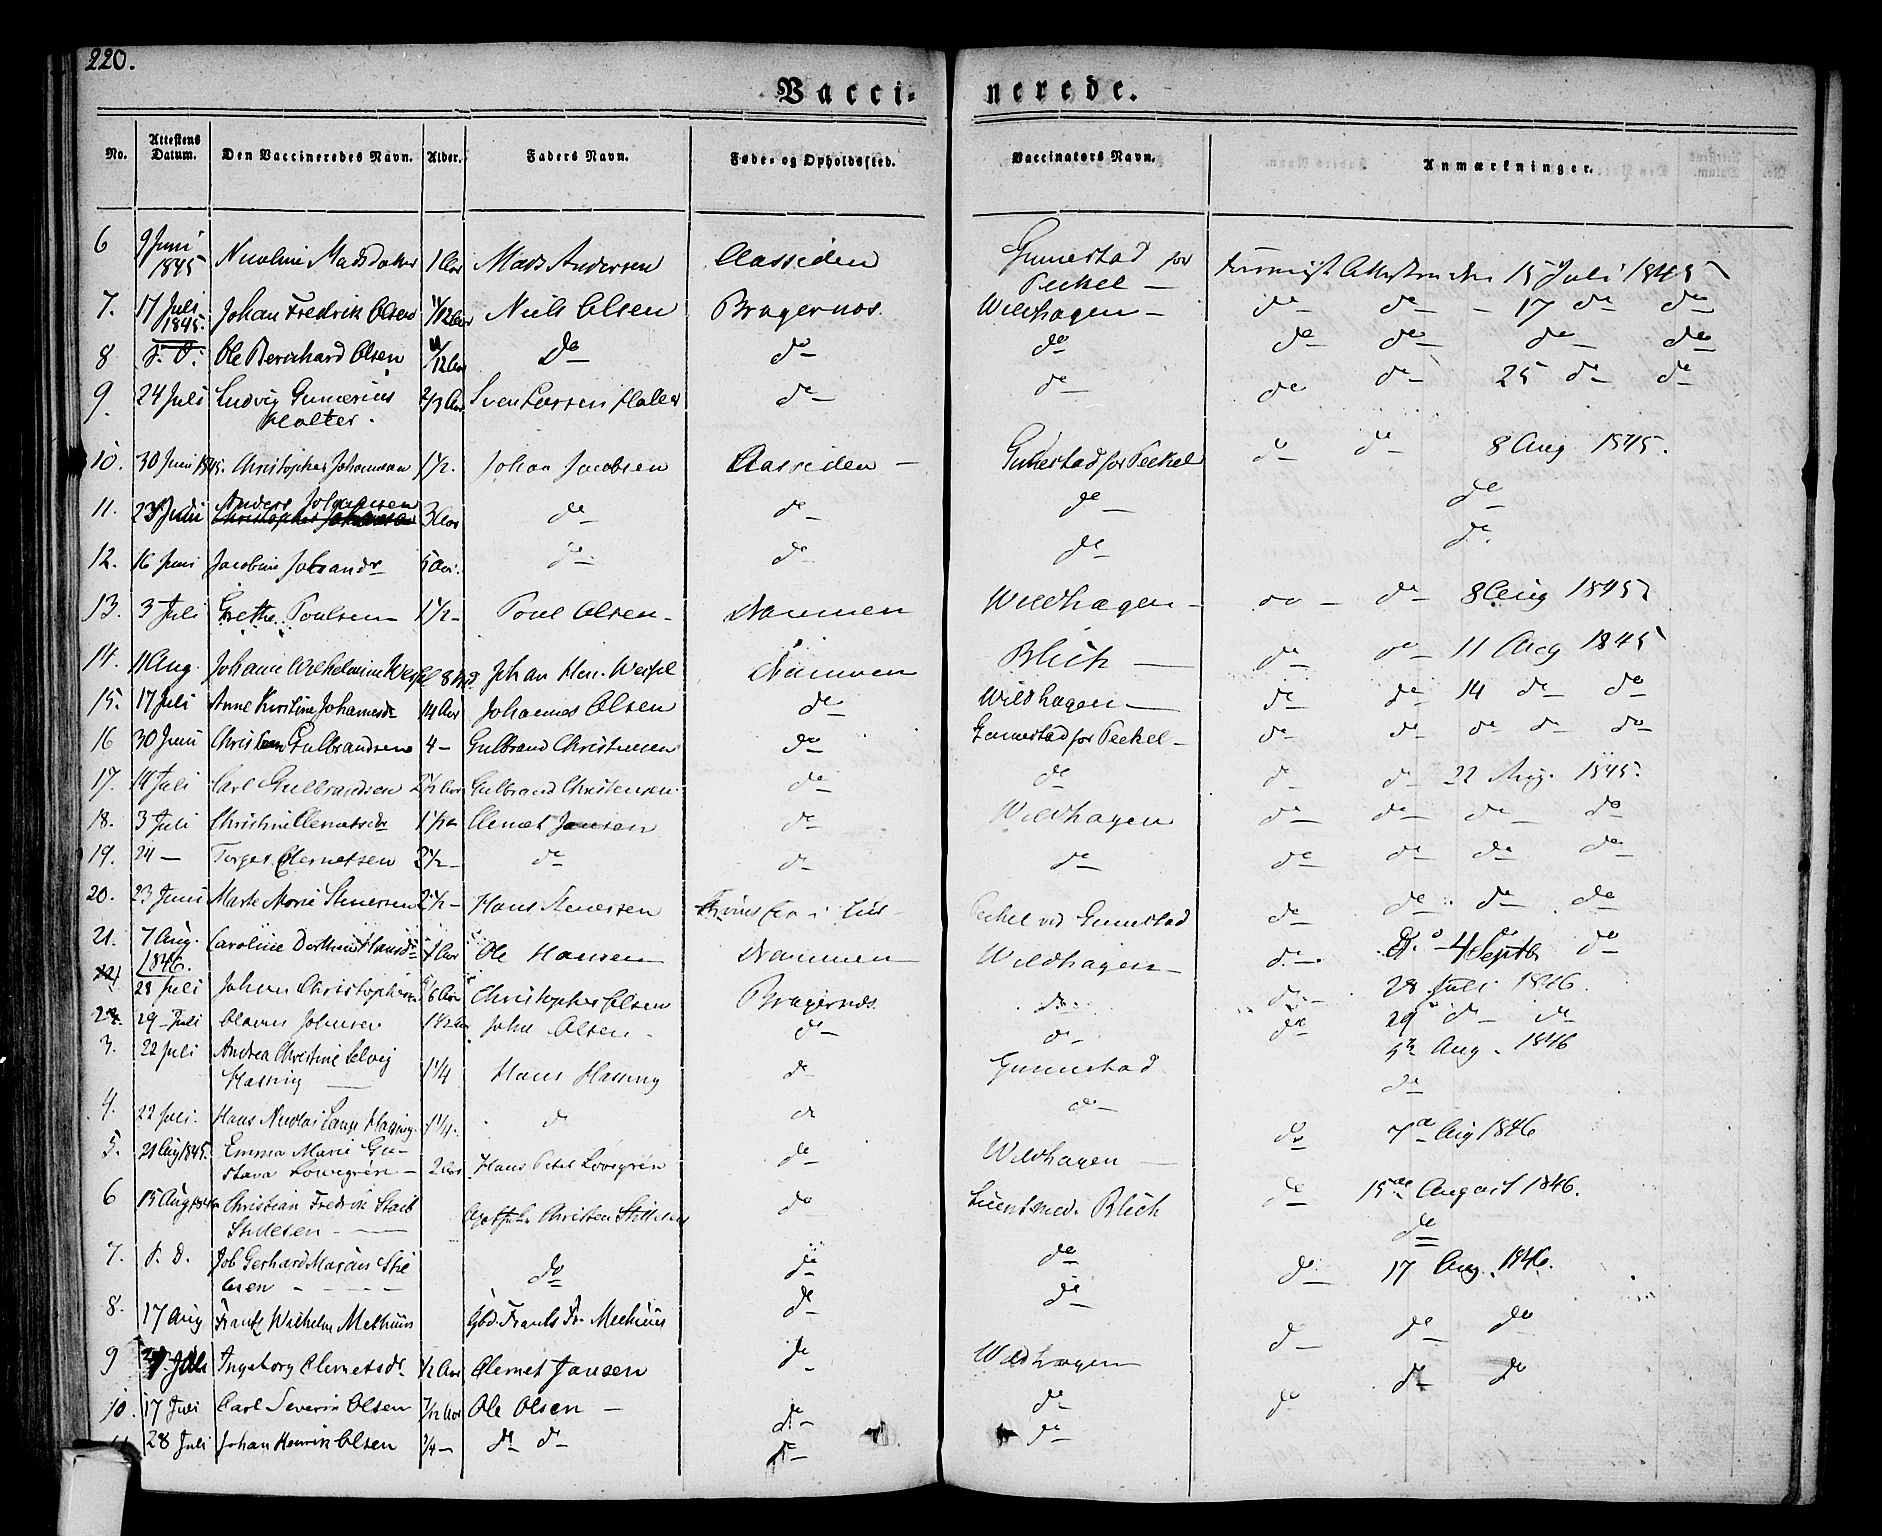 220.
Vacci- nerede.
No. Attestens Datum. Den Vaccineredes Navn. Alder. Faders Navn. Føde- og Opholdssted. Vaccinators Navn. Anmærkninger.
6 9 Juni 1845 Nicoline Madsdatter 1 Aar Mads Andersen Aassiden Gunnestad for Peckel — 15 Juli 1845
7. 17 Juli 1845. Johan Fredrik Olsen 11/12 Aar Niels Olsen Bragernæs. Wildhagen — do — do — 17 do do
8 s. D. Ole Bernhard Olsen 11/12 Aar Do do — do do do — do — do
9. 24 Juli Ludvig Gunerius Holter. 2/3 Aar Sven Larsen Holter do — do — do do — 25 do — do
10. 30 Juni 1845. Christopher Johansen 1 1/2. Johan Jacobsen Aassiden — Gunnestad for Peckel do — do — 8 Aug 1845.
11. 23 Juni Anders Johansen 3 Aar do — do — do — do
12. 16 Juni Jacobine Johansdr 5 Aar. do — do — do — do.
13. 3 Juli Grethe Poulsen — 1 1/2 — Poul Olsen — Nannen Wildhagen — do — do — 8 Aug 1845
14. 11 Aug. Johanne Wilhelmine Wessel 8 Johan Hen. Wessel Nannen Blich — do — do — 11 Aug 1845
15. 17 Juli Anne Kirstine Johannesdr 14 Aar Johannes Olsen do — Wildhagen — do — do — 14 do — do
16 30 Juni Christen Gulbrandsen 4 — Gulbrand Christensen do — Gunnestad for Peckel — do — do — do — do — do
17. 14 Juli Carl Gulbrandsen 2 1/2 Aar Gulbrand Christensen. do — do do do — 22 Aug. 1845.
18. 3 Juli Christine Clemetsdr 1 1/2 Clemet Jansen do — Wildhagen do — do — do — do
19. 24 — Torger Clemetsen 2 1/2 — do — do — do — do — do — do — do
20. 23 Juni Marte Marie Stenersen 2 1/2 — Hans Stenersen Peckel ved Gunnestad do — do — do — do
21. 7 Aug. Caroline Dorthea Hansdr 1 Aar Ole Hansen Nannen Wildhagen — do — D. 4 Septb do
1846.
28 Juli Johan Christophersen 6 Aar Christopher Olsen Bragernæs do. do 28 Juli 1846.
2. 29 Juli Johnsen 1 1/2 Aar John Olsen — do — do — do 29 do — do
3. 22 Juli Andrea Christine Hassing — 1 1/4 Hans Hassing do Gunnestad 5 Aug. 1846
4. 22 Juli. Hans Nicolai Lange Hassing 1 1/4. do do do — do
5. 21 Aug 1845. Emma Marie Gustava Lovegrén — 2 Aar Hans Peter Lovegrén do — Wildhagen — do 7 Aug 1846
6 15 Aug 1846 Christian Fredrik Stillesen — Christen Stillesen do Blich do 15de August 1846.
7. s. D. Job Gerhard Marius Stillesen — do do do do
8. 17 Aug Frantz Wilhelm Methuus Frants Fr. Methuus do do — do — 17 Aug. 1846.
9 Juli Ingeborg Clemetsdr 1/2 Aar Clemet Jansen do Wildhagen do — do — do
10. 17 Juli Carl Severin Olsen 7/12 Aar Ole Olsen — do — do — do do do
28 Juli Johan Henrik Olsen 3/4 — do do — do — do —